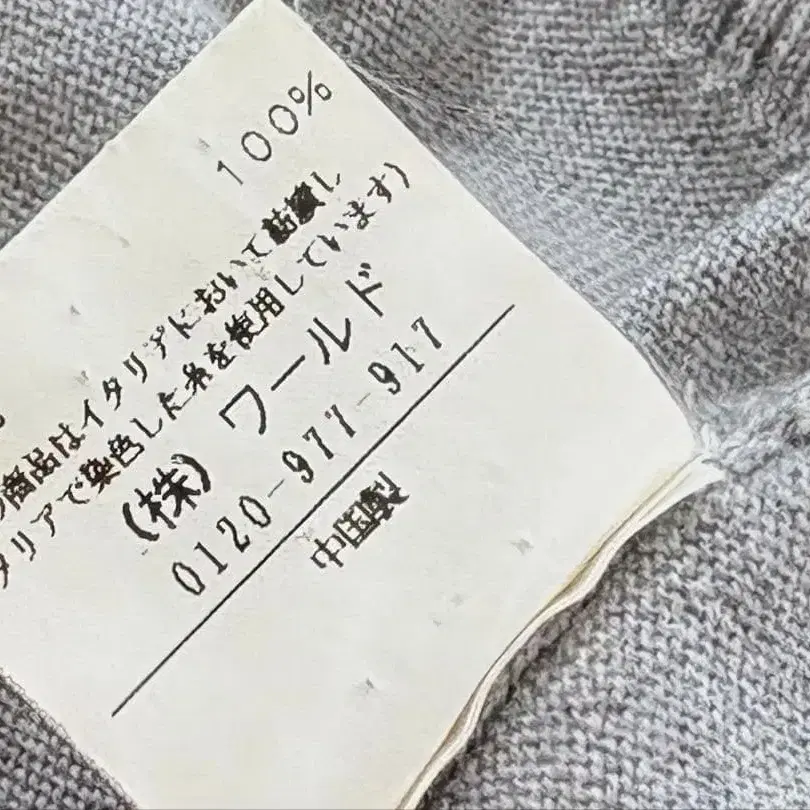 100%
商品はイタリアにおいて紡績し
タリアで染色した糸を使用しています)
(株) ワールド
0120-977-917
中国製